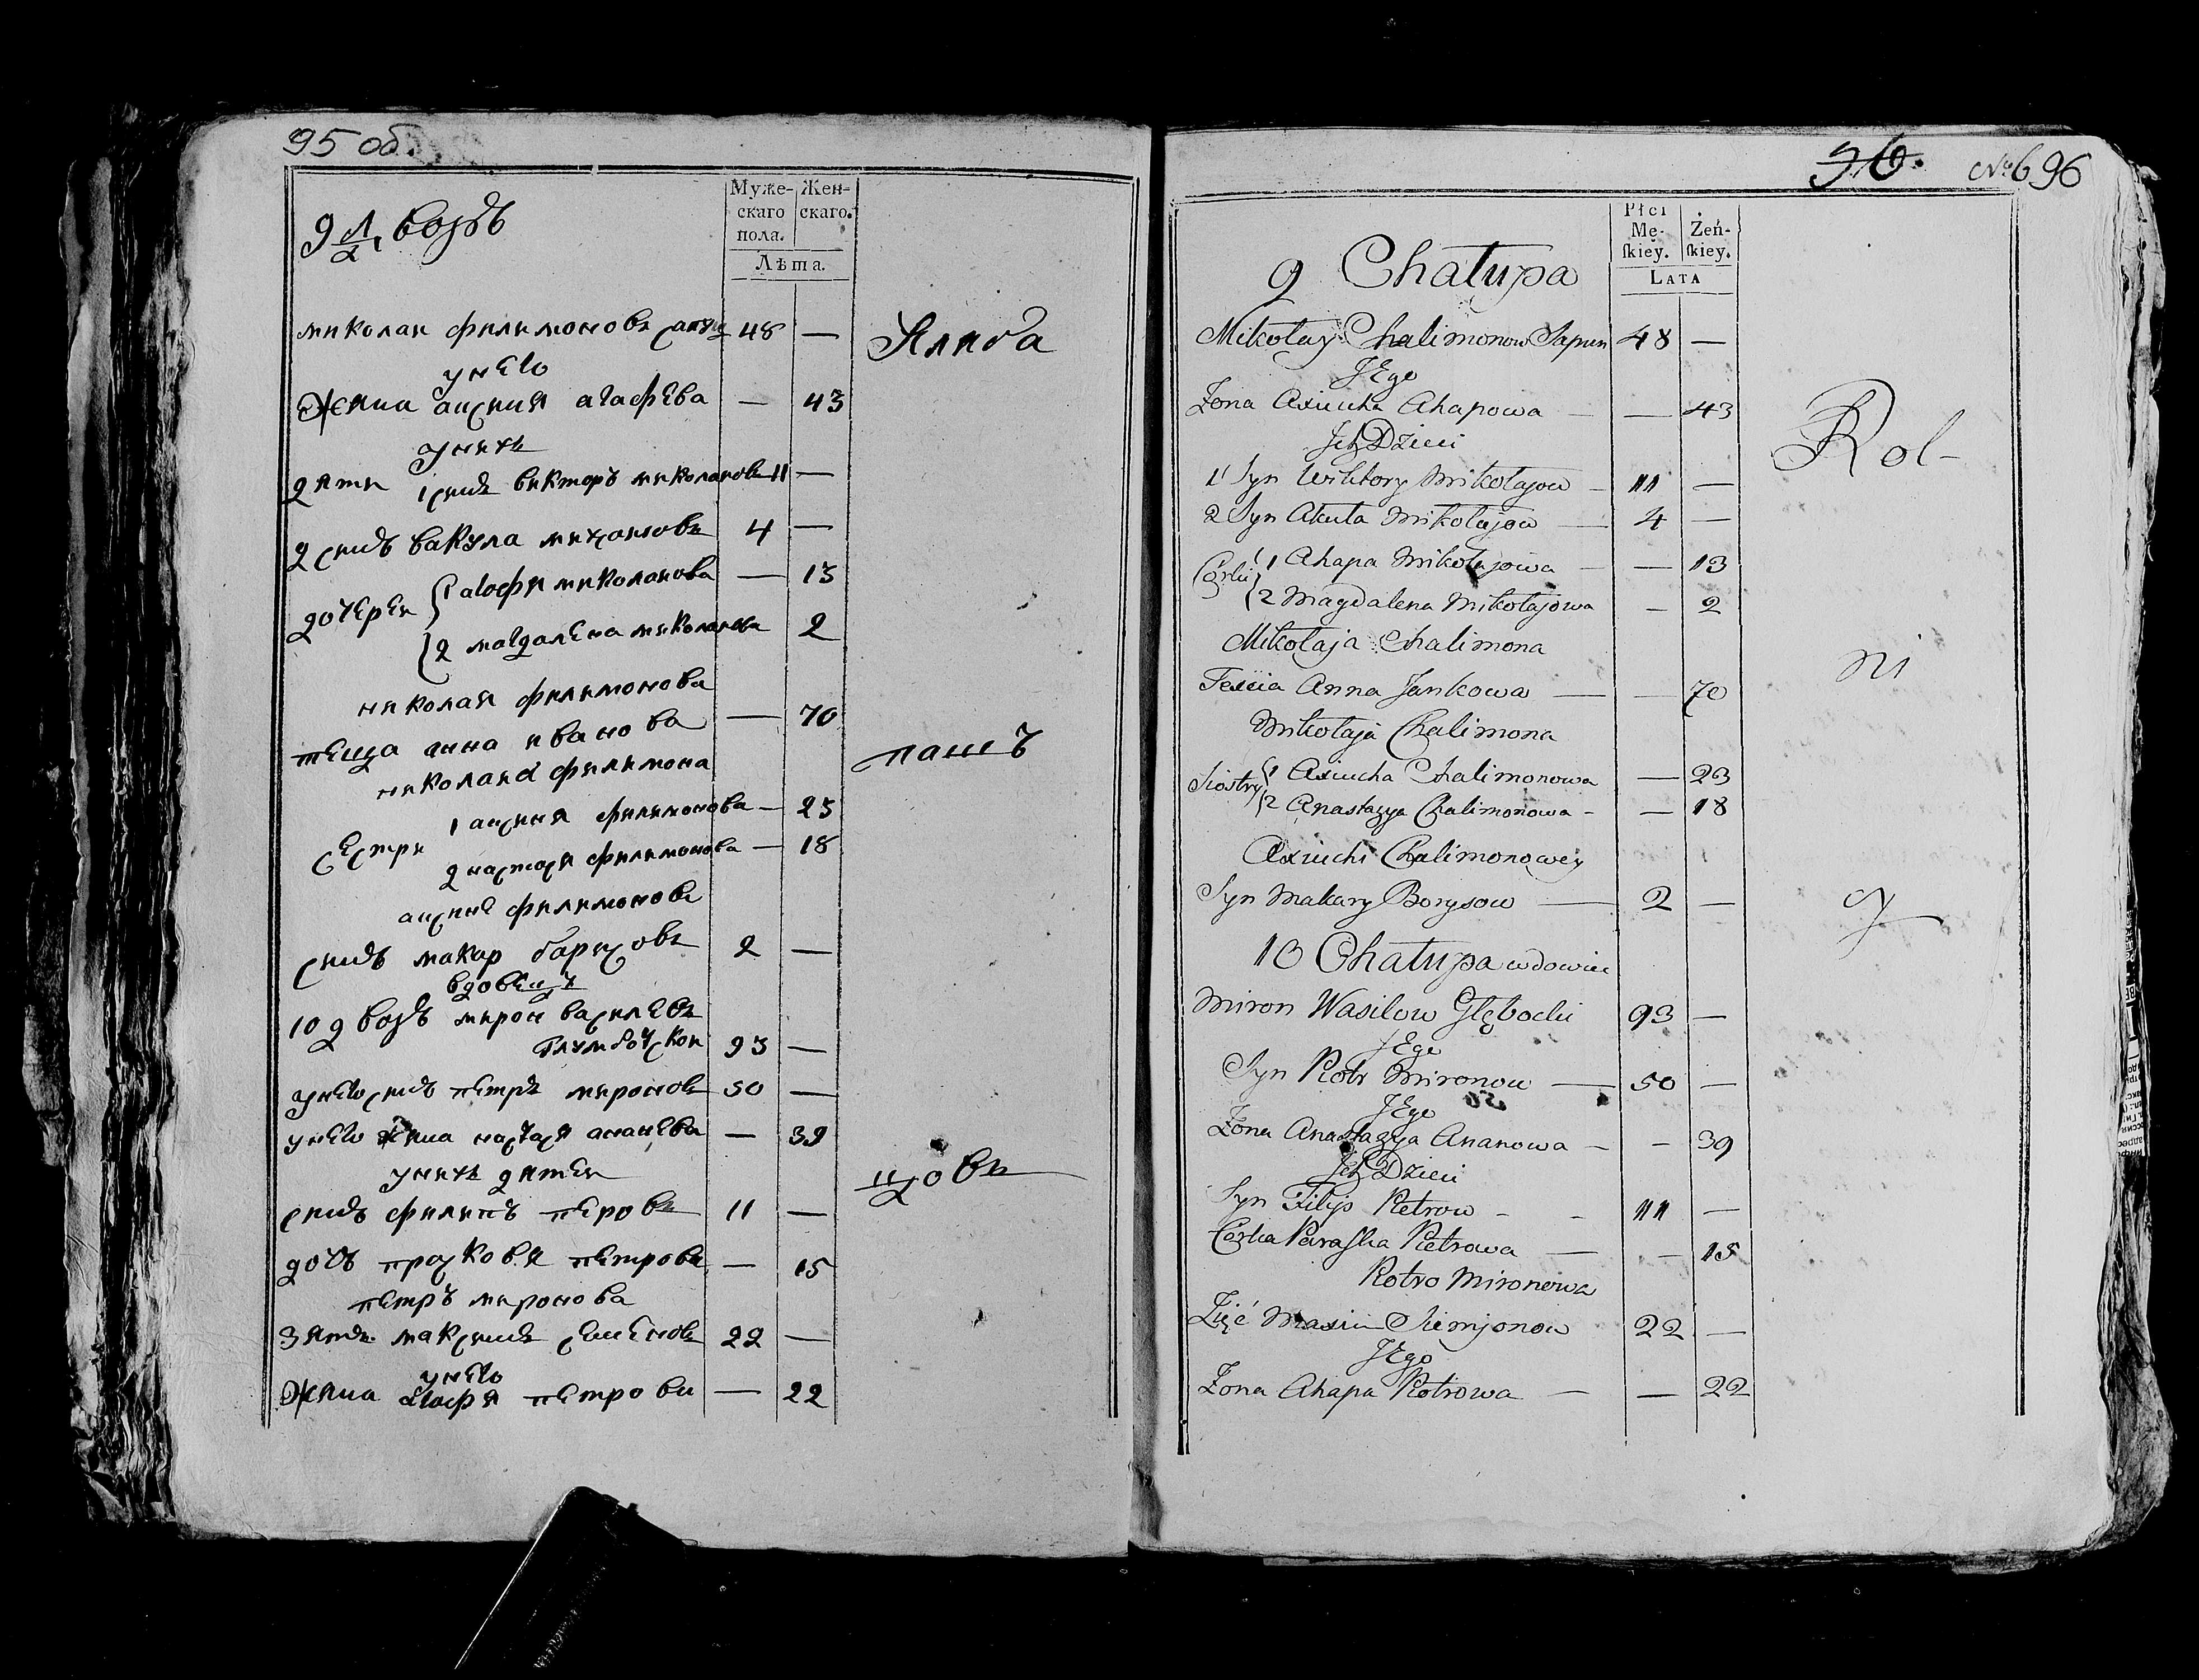 95 об.
Муже- Жен-
скаго скаго.
пола.
Лѣта.
миколаи филимоновъ 48 —
унего
жена аксиния агафева — 43
унихъ
дети 1 синъ викторъ миколаиовъ 11 —
2 синъ вакула 4 —
дочереи 1 агафия миколаиова — 13
2 магдалена миколаиова 2
николая филимонова
теща анна иванова — 70
николаиа филимона
1 аксиния филимонова — 23
сестри
2 настася филимонова — 18
аксини филимонови
синъ макар барисовъ 2 —
вдовецъ
10 мирон василевъ
глумбоцкои 93 —
унего синъ петръ мироновъ 50 —
унего жена настася ананева — 39
унихъ детеи
синъ филипъ петровъ 11 —
дочъ прасковя петрова — 15
петръ миронова
зять максимъ семеновъ 22 —
унего
жена агафя петрова — 22
пашъ
цовъ
96. № 696
Płci
Mę- Żeń-
ſkiey. ſkiey.
LATA
9 Chałupa
Mikołay Chalimonow Sapun 48 —
JEgo
Żona Axiucha Ahapowa — — 43
Jch Dzieci
1 Syn Wiktory Mikołajow — 11 —
2 Syn Akuła Mikołajow — 4 —
Corki 1 Ahapa Mikołajowa — — 13
2 Magdalena Mikołajowa — 2
Mikołaja Chalimona
Teścia Anna Jankowa — — 70
Mikołaja Chalimona
Siostry 1 Axiucha Chalimonowa — 23
2 Anastazya Chalimonowa - — 18
Axiuchi Chalimonowey
Syn Makary Borysow — 2 —
10 Chałupa wdowiec
Miron Wasilow Głębocki 93 —
JEgo
Syn Piotr Mironow — 50 —
JEgo
Żona Anastazya Ananowa — — 39
Jch Dzieci
Syn Filip Pietrow - - 11 —
Corka Paraſka Pietrowa — — 15
Piotro Mironowa
Zięć Maxim Siemjonow 22 —
JEgo
Żona Ahapa Piotrowa — — 22
Rol-
ni
cy